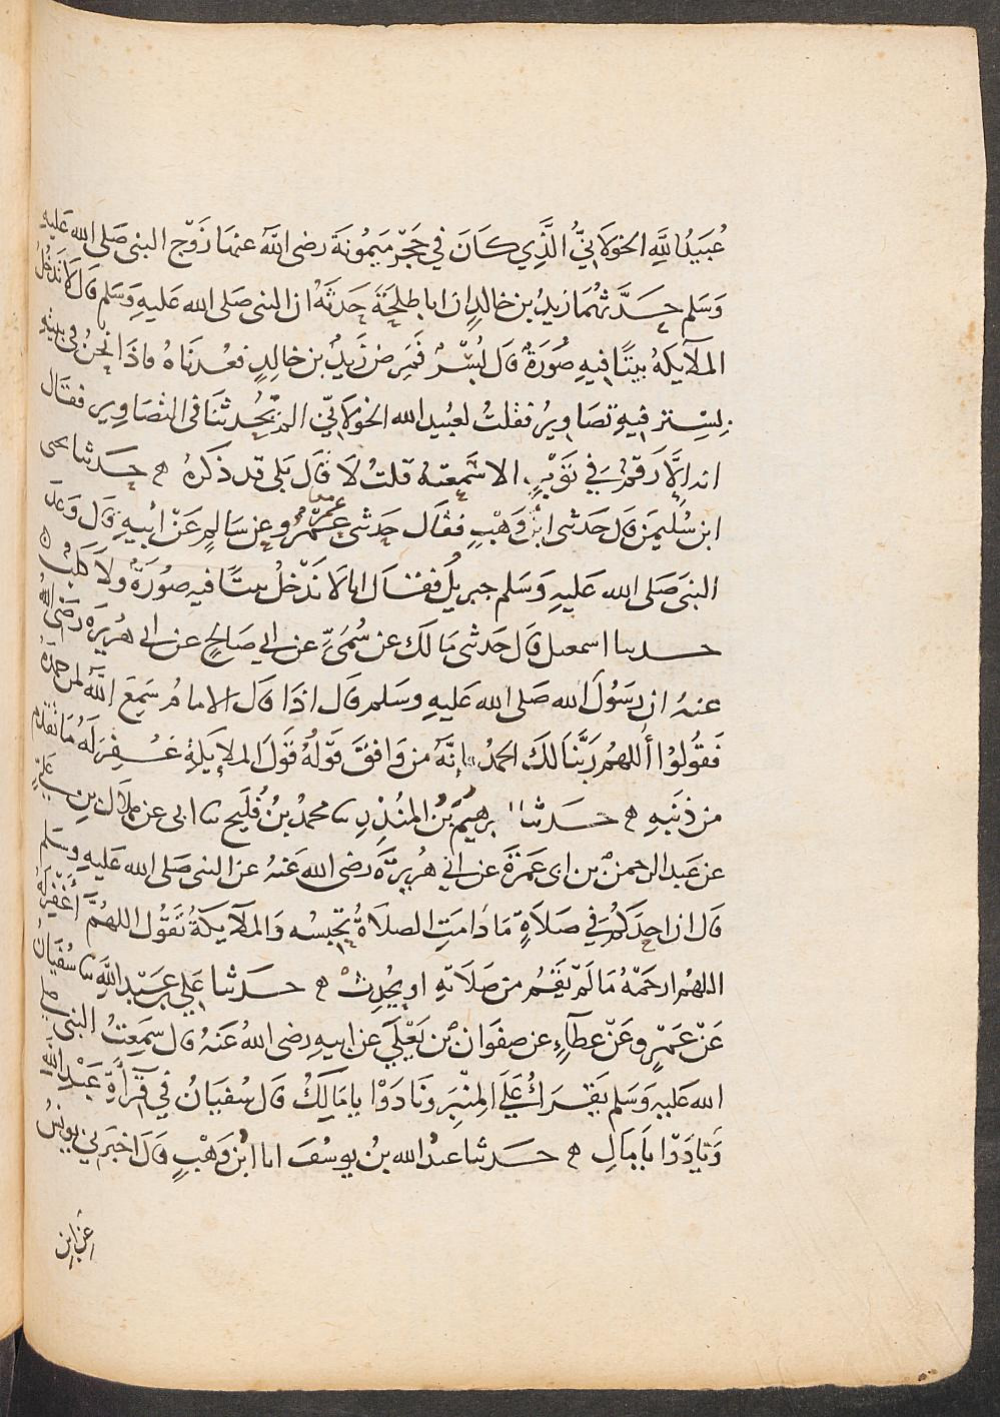 عُبَيدُ اللَّهِ الخولَانِيُّ الَّذِي كَانَ فِي حَجْرِ مَيمُونَةَ رضى اللَّهُ عنهَا زَوْجِ النبى صَلى الله عَليهِ
وَسَلم حَدَّثَهُمَا زيدُ بن خالدٍ ان ابا طلحَةَ حَدثَهُ ان النبى صَلى الله عَليهِ وَسَلم قَالَ لَا تَدخُلُ
الملَآيكَةُ بيتًا فِيهِ صُورَةٌ قَال بُسْرٌ فَمَرِضَ زَيدُ بن خالدٍ فعُدنَاهُ فاذَا نحنُ فى بيتِهِ
بِسِترٍ فيهِ تصَاوِيرُ فقلتُ لعبيد الله الخولَانِيّ الم يُحدثنَا فى التصَاوِيرِ فقَال
انه إلَّا رَقمٌ فِي ثَوْبٍ الا سَمِعتهُ قلتُ لَا قَال بَلى قد ذكرهُ ۞ حَدثنا يحيى
ابن سُليمَن قَال حَدثنى ابنُ وَهْبٍ فقَال حَدثنى عُمَرُ وعن سَالِمٍ عَنْ ابيهِ قَال وَعدَ
النبىَ صَلى الله عَليهِ وَسَلم جبريلُ فقَال انا لَا نَدْخلُ بيتًا فيه صُورَةٌ ولَا كَلبٌ
حدثنا اسمعيل قال حَدثنى مَالك عن سُمَىٍّ عن ابي صَالحٍ عن ابى هُرَيرَه رَضى اللهُ
عنهُ ان رَسُولَ الله صَلى الله عَليهِ وسَلم قَال اذَا قَال الامامُ سَمِعَ اللَّهُ لمن حمدَهُ
فَقُولُوْا أللهُم رَبَّنَا لَكَ الحمدُ فإنَّهُ من وَافَقَ قَوْلُهُ قَولَ الملَايكَةِ غُفِرَ لَهُ مَا تَقدَّم
من ذنبَهِ ۞ حدثنا ابرهيمُ بنُ المنُذِرِ ثنا محمدُ بنُ فُلَيح ثنا ابى عن هلَال بنِ عَليٍّ
عن عَبد الرحمن بن ابى عَمرَةَ عن ابي هُرَيرَةَ رضى الله عَنهُ عن النبى صَلى الله عَليهِ وسَلم
قَال ان احدَكُمْ فِي صَلَاةٍ مَا دَامَتِ الصلَاةُ تحبسُه وَالملَآيكَةُ تَقُول اللهُمَّ أغْفِرْ لَهُ
اللهُم ارحَمْهُ مَا لَمْ يَقُمْ من صَلَاتهِ او يُحْدِثْ ۞ حَدثنا عَلِي بن عَبْدِ اللَّهِ ثنا سُفيَانُ
عَنْ عَمْرٍو عَنْ عطآءٍ عن صفوَان بْن يَعْلَي عن ابيهِ رضى اللهُ عَنهُ قَال سَمِعتُ النبى صلى
الله عَليهِ وَسَلم يَقرَأُ عَلَي المِنْبَرِ وَنَادَوْا يا مَالِكُ قَال سُفيَانُ فِي قِرآءَةِ عَبْدِ اللَّهِ
وَنَادَوْا يَا مَالِ ۞ حَدثنا عبدُ الله بنُ يوسُفَ انا ابْنُ وَهْبٍ قَال اخبَرَنِي يونسُ
عن ابن